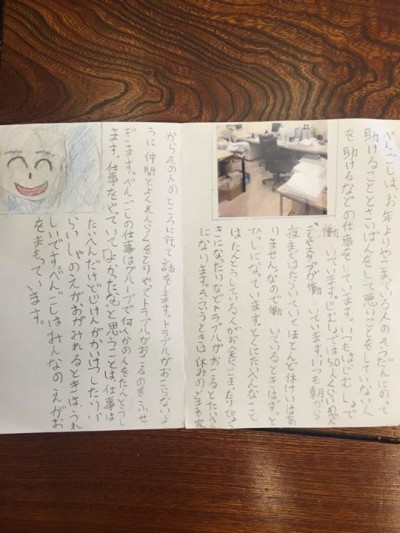 べんごしは、お年よりやこまっている人のそうだんにのって
助けることとさいばんをして悪いことをしていない人
を助けるなどの仕事をしています。いつもはじむしょで
働いています。じむしょでは50人くらいの人
が働いています。いつも朝から
夜まではたらいていてほとんど休けいはあ
りません。なので働いているときはずっと
ひしになっています。とくにたいへんなこと
はたんとうしている人がお金にこまったりびょう
きになったりなどトラブルがおこるとたいへん
になります。そういうときは休みのときも
からその人のところに行って話をします。トラブルがおこらないよ
うに仲間とよくれんらくをとりやってトラブルがおこるのをふせ
ぎます。べんごしの仕事はグループで何人かの人をたんとうし
ます。仕事をやっていてよかったなと思うことは、仕事は
たいへんだけどじけんがかいけつしたり
いらいしゃのえがおがみれるときは、うれ
しいです。べんごしはみんなのえがお
をまもっています。